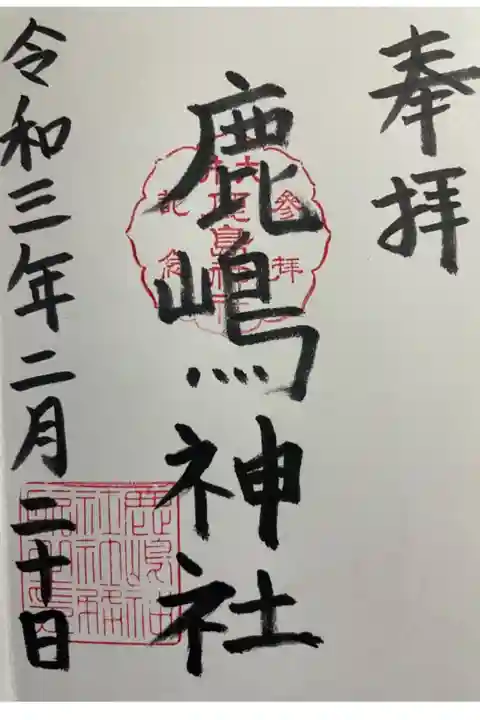 奉拝
鹿嶋神社
参拝
記念
令和三年二月二十日